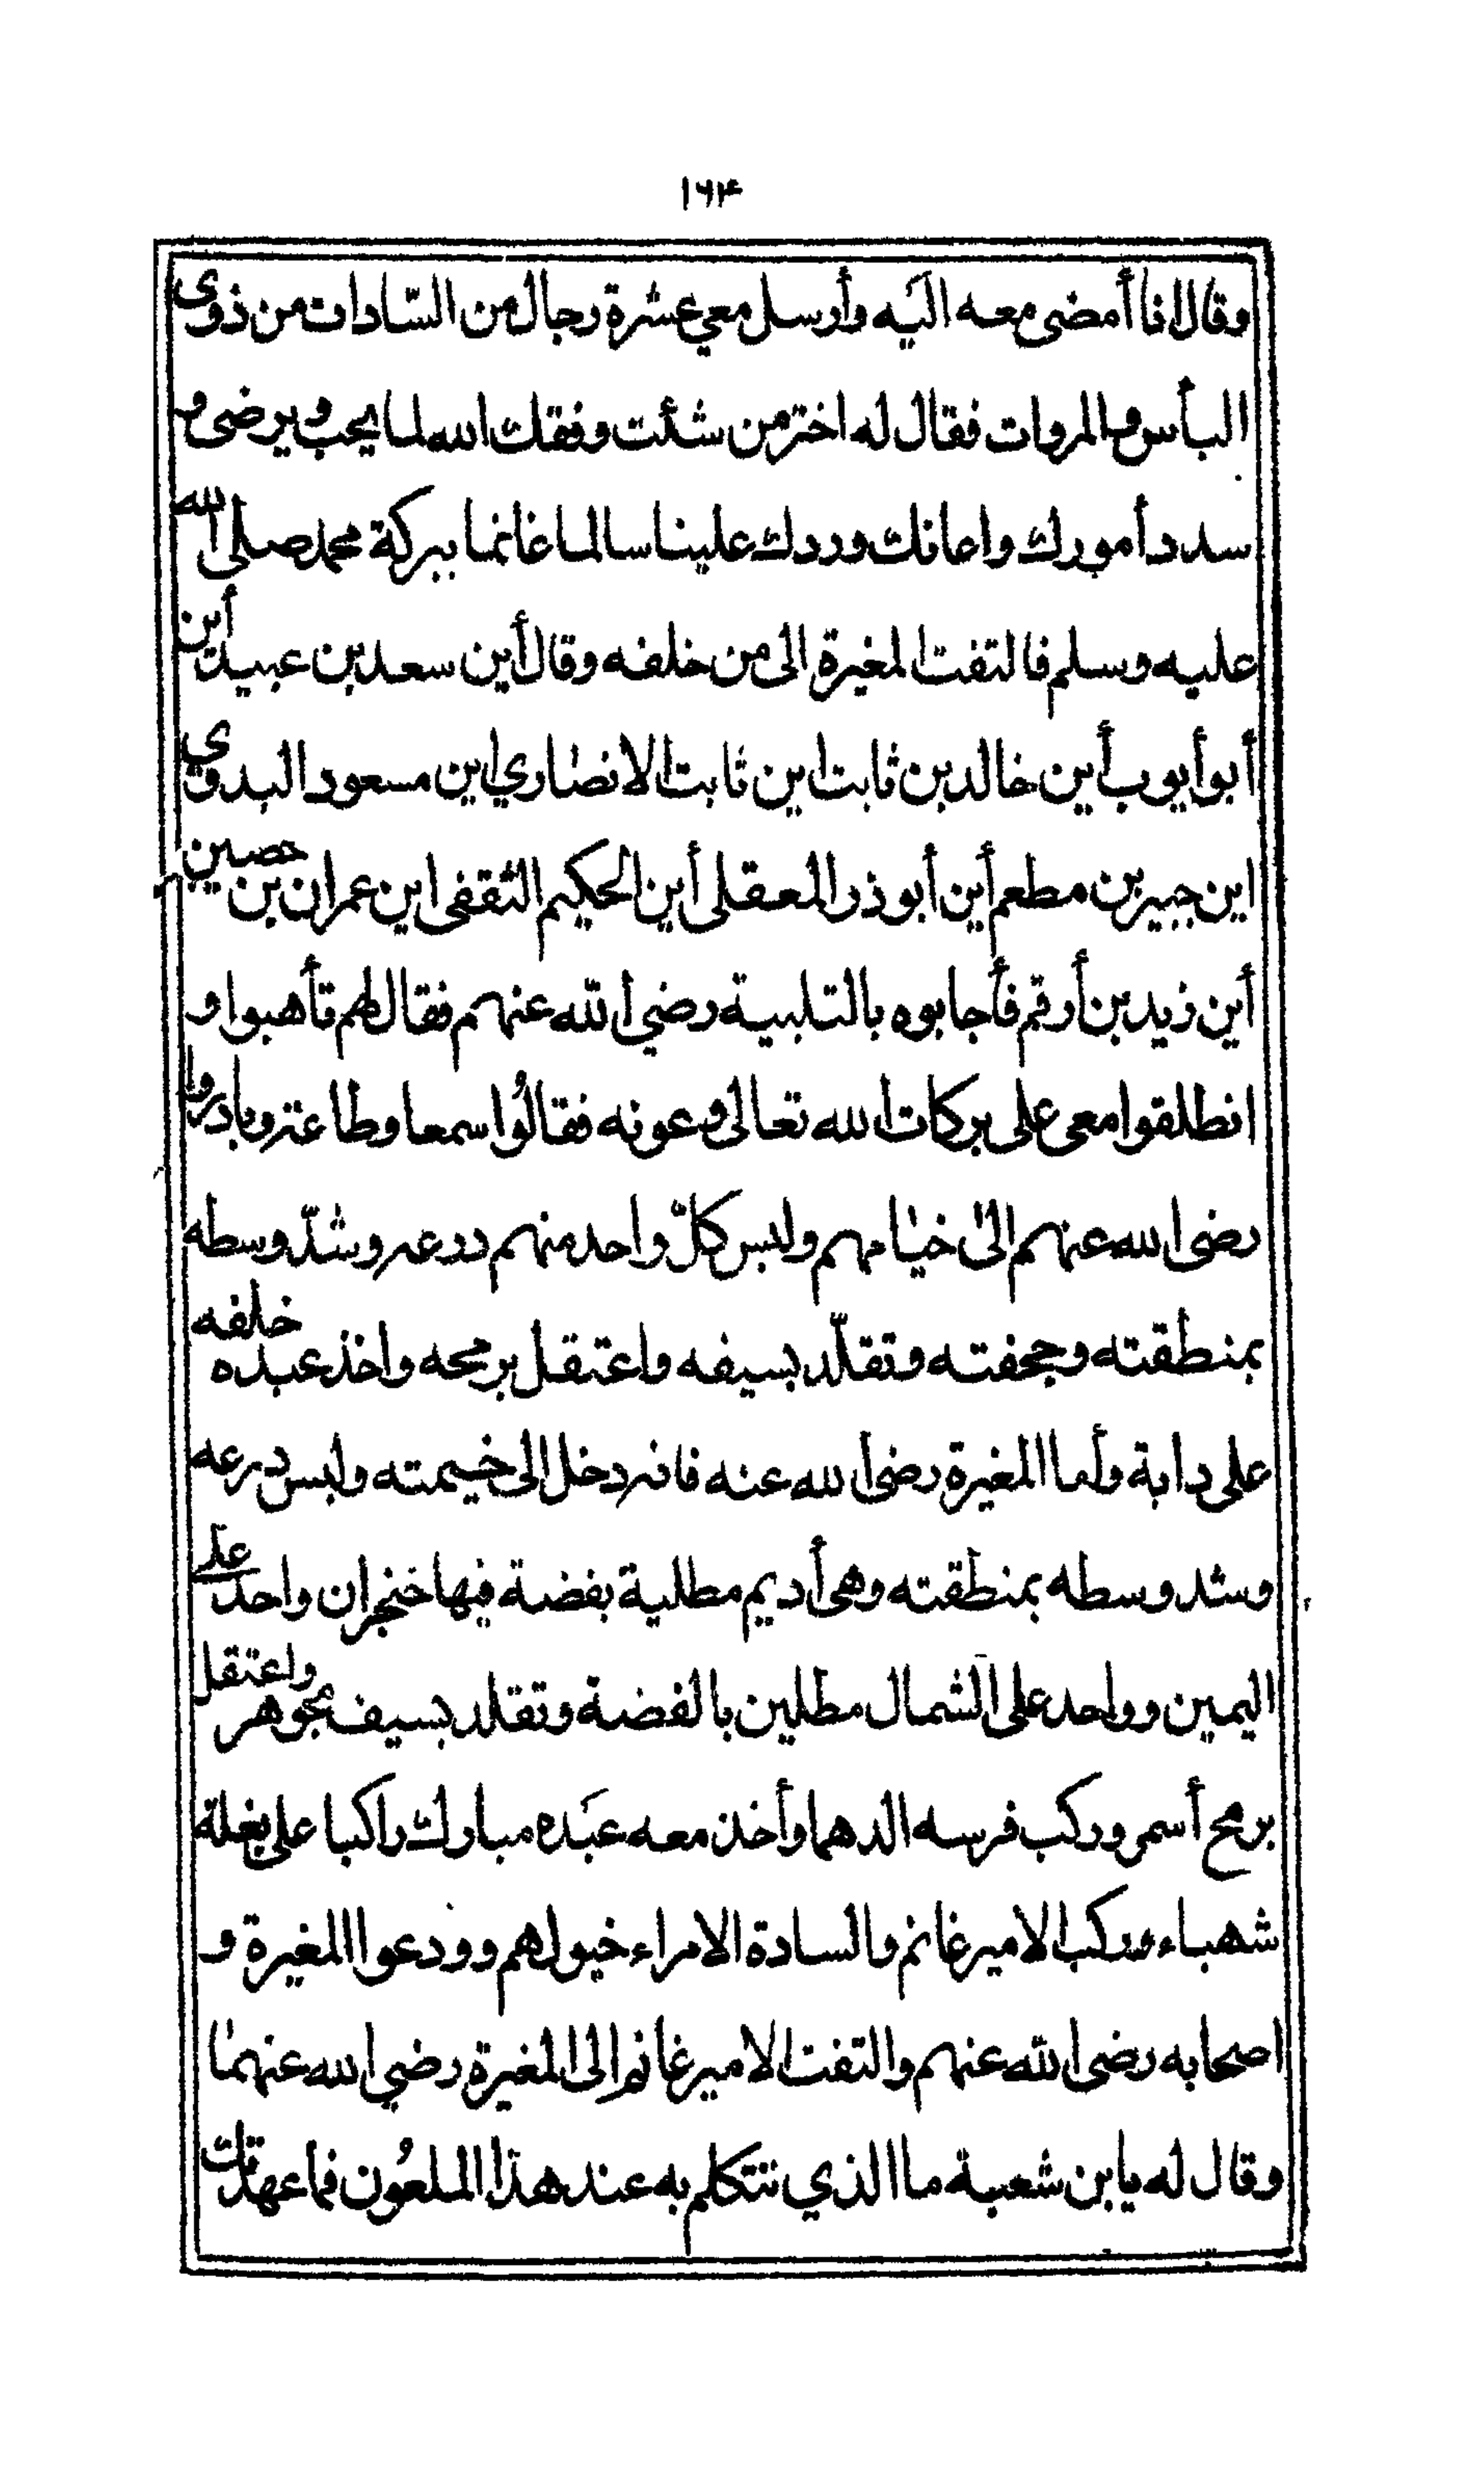 ١٦٤
وقال انا أمضى معه اليه وأرسل معي عشرة رجال من السّادات من ذوى
البأس والمروات فقال له اختر من شئت وفقك الله لما يحب ويرضى و
سدد أمورك واعانك وردك علينا سالما غانما ببركة محمد صلى الله
عليه وسلم فالتفت المغيرة الى من خلفه وقال أين سعد بن عبيد أين
أبو أيوب أين خالد بن ثابت اين ثابت الانصاري اين مسعود البدوي
اين جبير بن مطعم أين أبو ذر المعقلى أين الحكيم الثقفى اين عمران بن حصين
أين زيد بن أرقم فأجابوه بالتلبية رضي الله عنهم فقال لهم تأهبوا و
انطلقوا معى على بركات الله تعالى وعونه فقالُوا سمعا وطاعة وبادروا
رضى الله عنهم الى خيامهم ولبس كلّ واحد منهم درعه وشدّ وسطه
بمنطقته وجحفته وتقلّد بسيفه واعتقل برمحه واخذ عبده خلفه
على دابة وأما المغيرة رضى الله عنه فانه دخل الى خيمته ولبس درعه
وشد وسطه بمنطقته وهى أديم مطلية بفضة فيها خنجران واحد على
اليمين وواحد على الشمال مطلين بالفضة وتقلد بسيف مجوهر واعتقل
برمح أسمر وركب فرسه الدهما وأخذ معه عبَده مبارك راكبا على بغلة
شهباء وركب الامير غانم والسادة الامراء خيولهم وودعوا المغيرة و
اصحابه رضى الله عنهم والتفت الامير غانم الى المغيرة رضي الله عنهما
وقال له يا بن شعبة ما الذي نتكلم به عند هذا الملعُون فما عهدتك